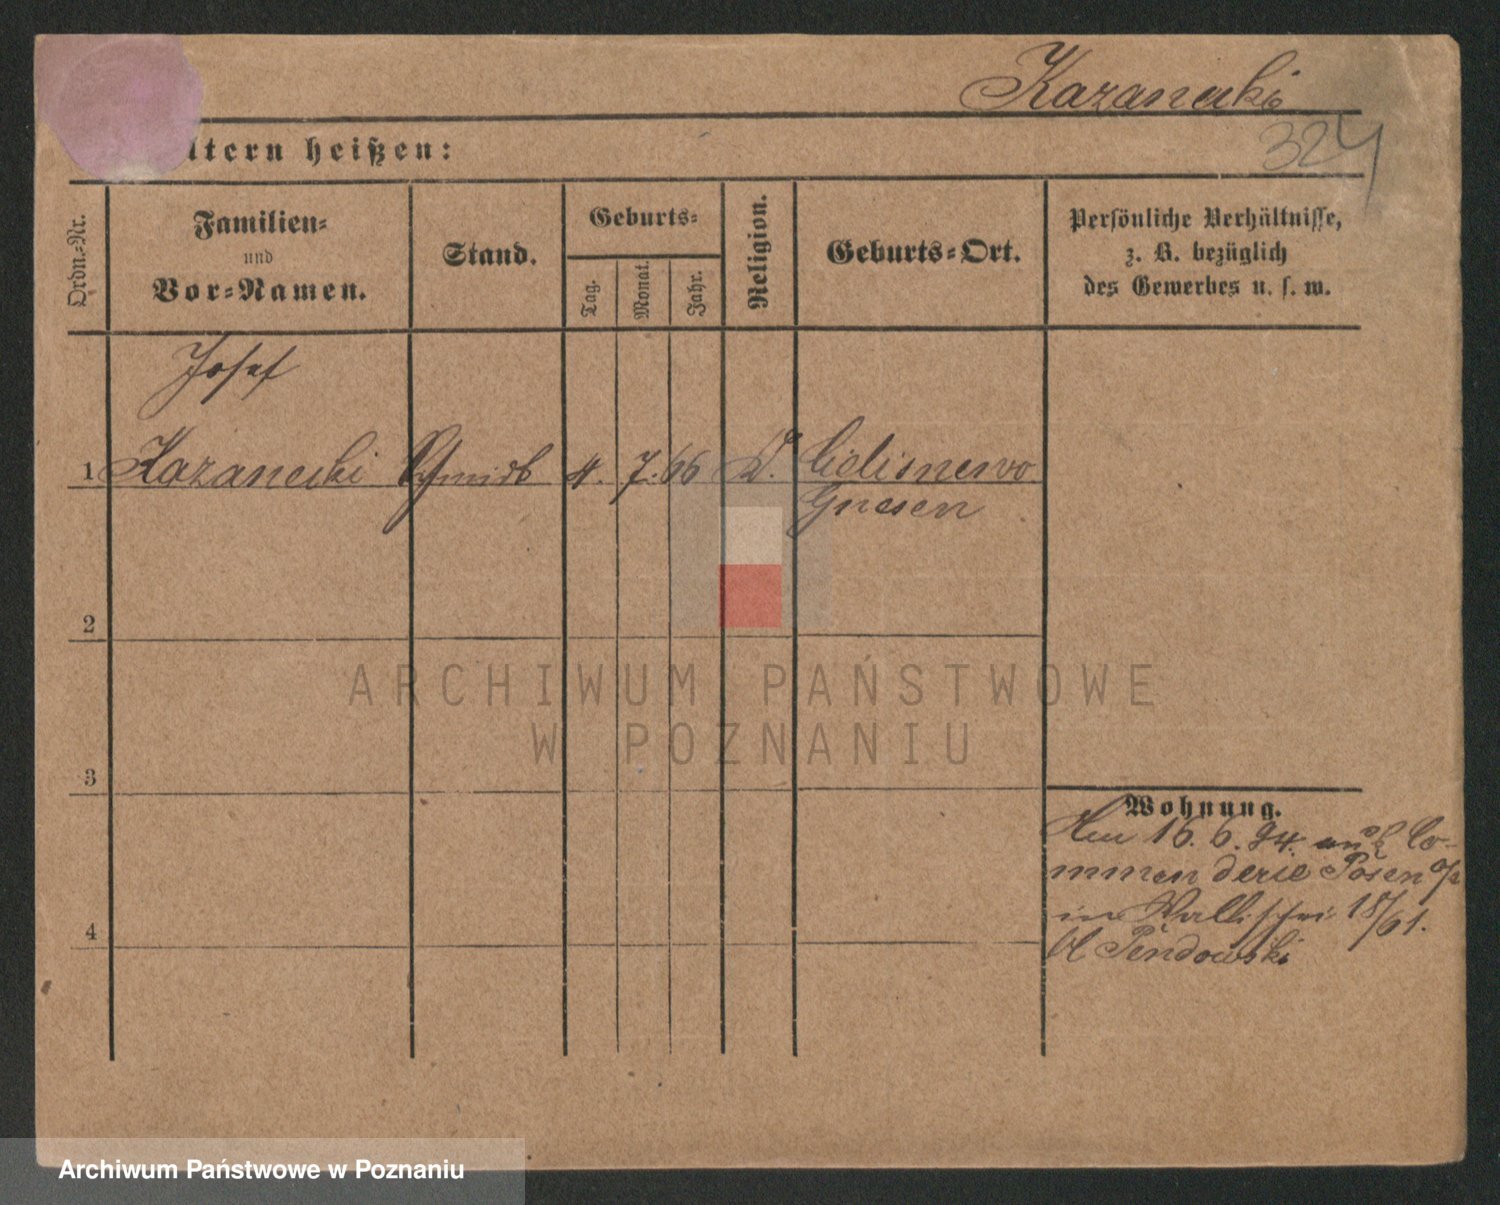 Kazanecki
324
ltern heißen:
Ordn.-Nr.
Familien-
und
Vor-Namen.
Stand.
Geburts-
Tag.
Monat.
Jahr.
Religion.
Geburts-Ort.
Persönliche Verhältnisse,
z. B. bezüglich
des Gewerbes u. s. w.
Josef
1 Kazanecki Schmidt 4. 7. 66
Gnesen
2
3
4
Wohnung.
16. 6. 94. aus Co-
mmenderie Posen
in Wallischei 18/61.
Pendowski
ARCHIWUM PAŃSTWOWE
W POZNANIU
Archiwum Państwowe w Poznaniu